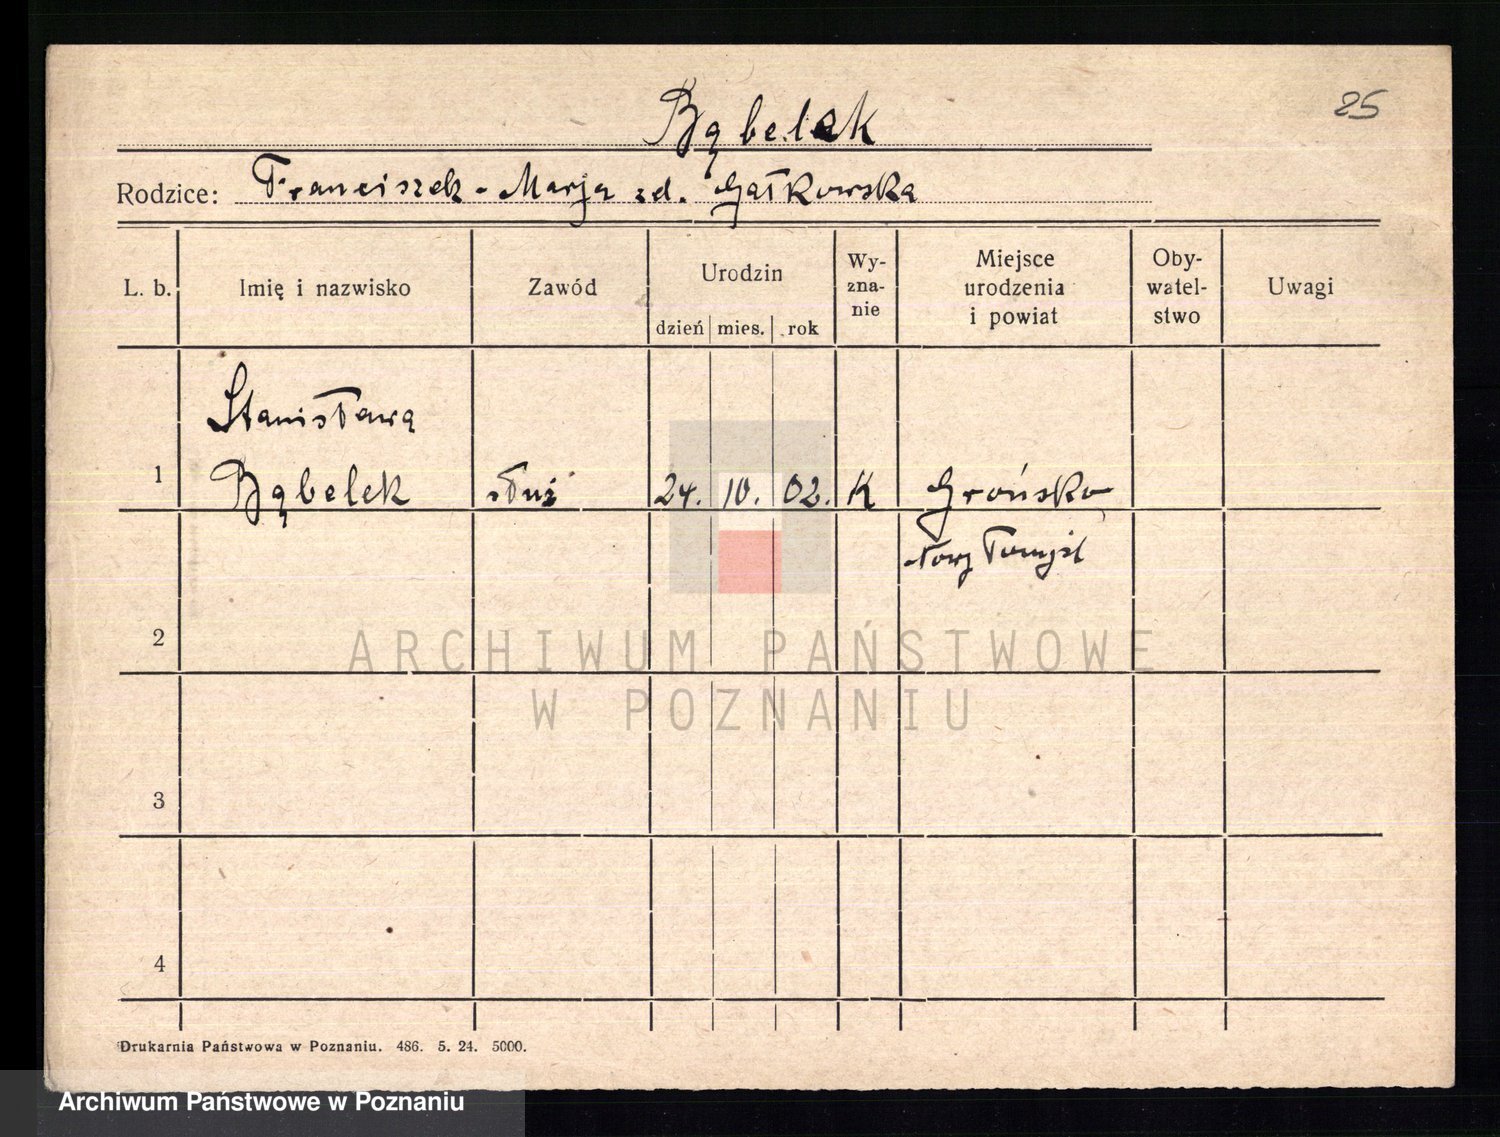 25
Bąbelek
Rodzice: Franciszek - Marja zd. Gałkowska
L. b. Imię i nazwisko Zawód Urodzin dzień mies. rok Wy-zna-nie Miejsce urodzenia i powiat Oby-watel-stwo Uwagi
Stanisława
1 Bąbelek służ 24. 10. 02. K Grońsko
Nowy Tomyśl
2
ARCHIWUM PAŃSTWOWE
W POZNANIU
3
4
Drukarnia Państwowa w Poznaniu. 486. 5. 24. 5000.
Archiwum Państwowe w Poznaniu